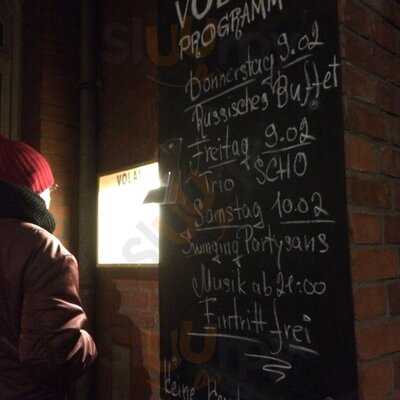 VOLA
PROGRAMM
Donnerstag 9.02
Russisches Buffet
Freitag 9.02
Trio SCHO
Samstag 10.02
Swinging Partysans
Musik ab 21:00
Eintritt frei
Keine
VOLA